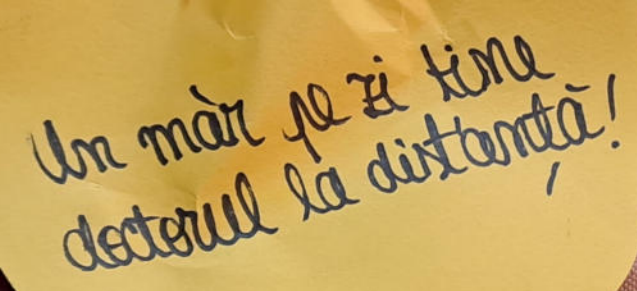 Un măr pe zi tine
doctorul la distanță!